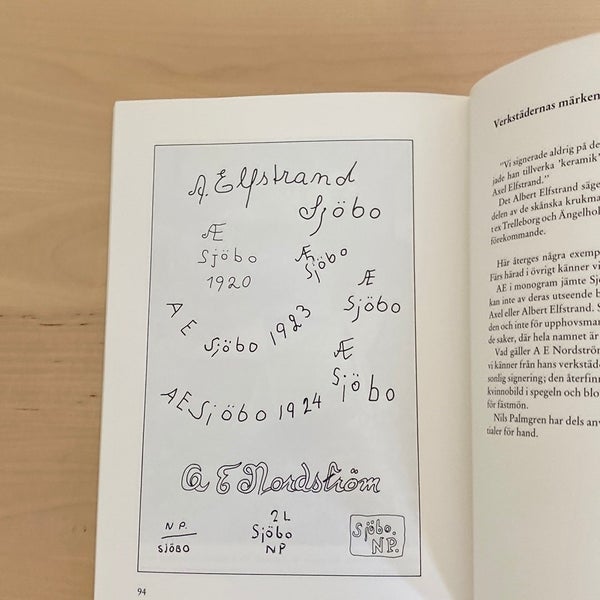 A. Elfstrand
Sjöbo
Æ
Sjöbo
1920
Æ
Sjöbo
Æ
Sjöbo
A E Sjöbo 1923
Æ
Sjöbo
AE Sjöbo 1924
A E Nordström
N P.
SJÖBO
2 L
Sjöbo
NP
Sjöbo.
NP.
94
Verkstädernas märken
"Vi signerade aldrig på de
jade han tillverka 'keramik'
Axel Elfstrand."
Det Albert Elfstrand säge
delen av de skånska krukma
t ex Trelleborg och Ängelhol
förekommande.
Här återges några exemp
Färs härad i övrigt känner vi
AE i monogram jämte Sj
kan inte av deras utseende b
Axel eller Albert Elfstrand. S
den och inte för upphovsma
de saker, där hela namnet är
Vad gäller A E Nordströ
vi känner från hans verkstäde
sonlig signering; den återfin
kvinnobild i spegeln och blo
för fästmön.
Nils Palmgren har dels anv
tialer för hand.